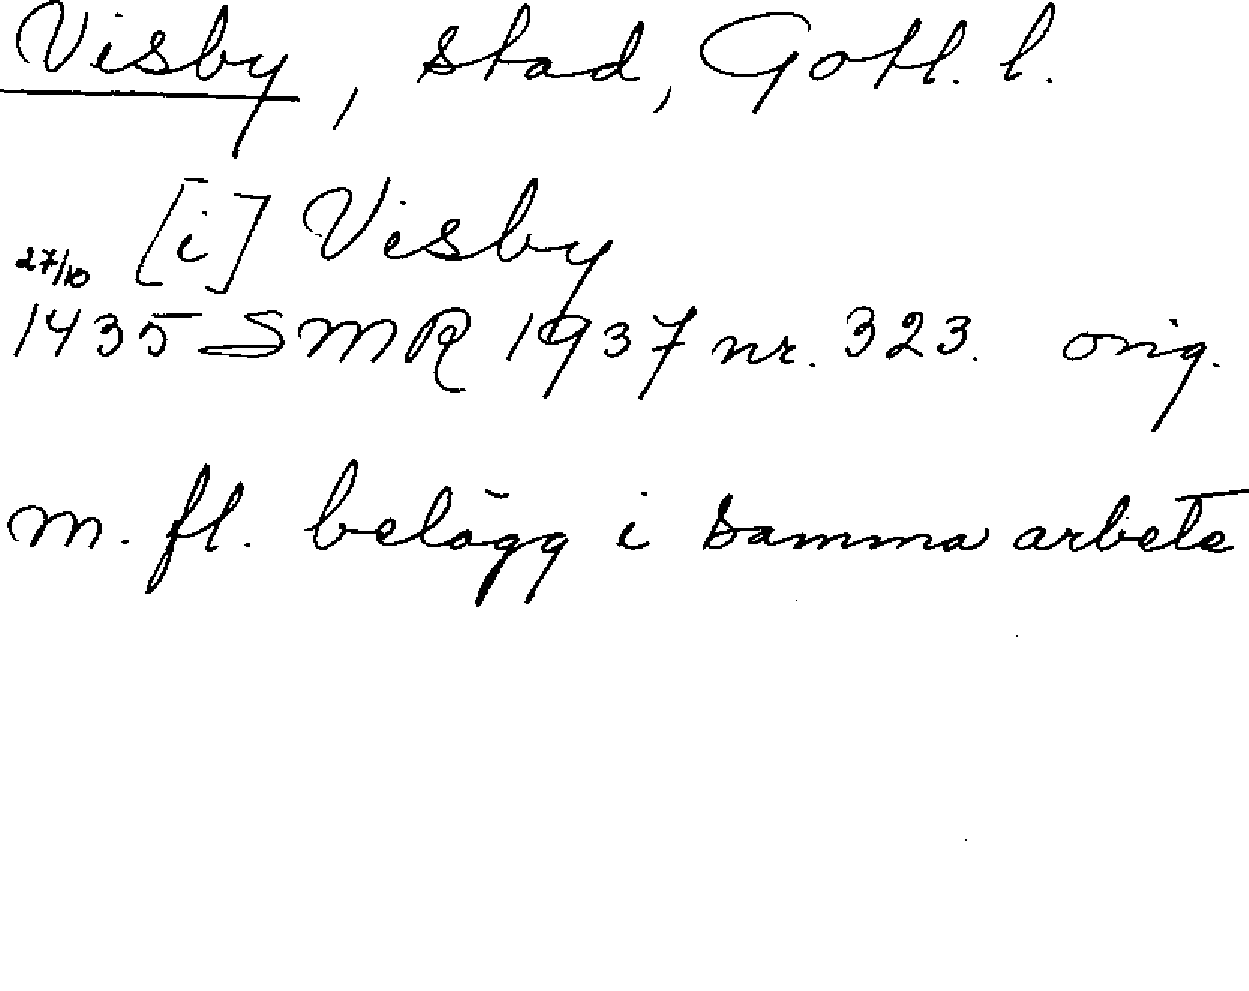 Visby, stad, Gotl. l.
[i] Visby
27/10
1435 SMR 1937 nr. 323. orig.
m. fl. belägg i samma arbete